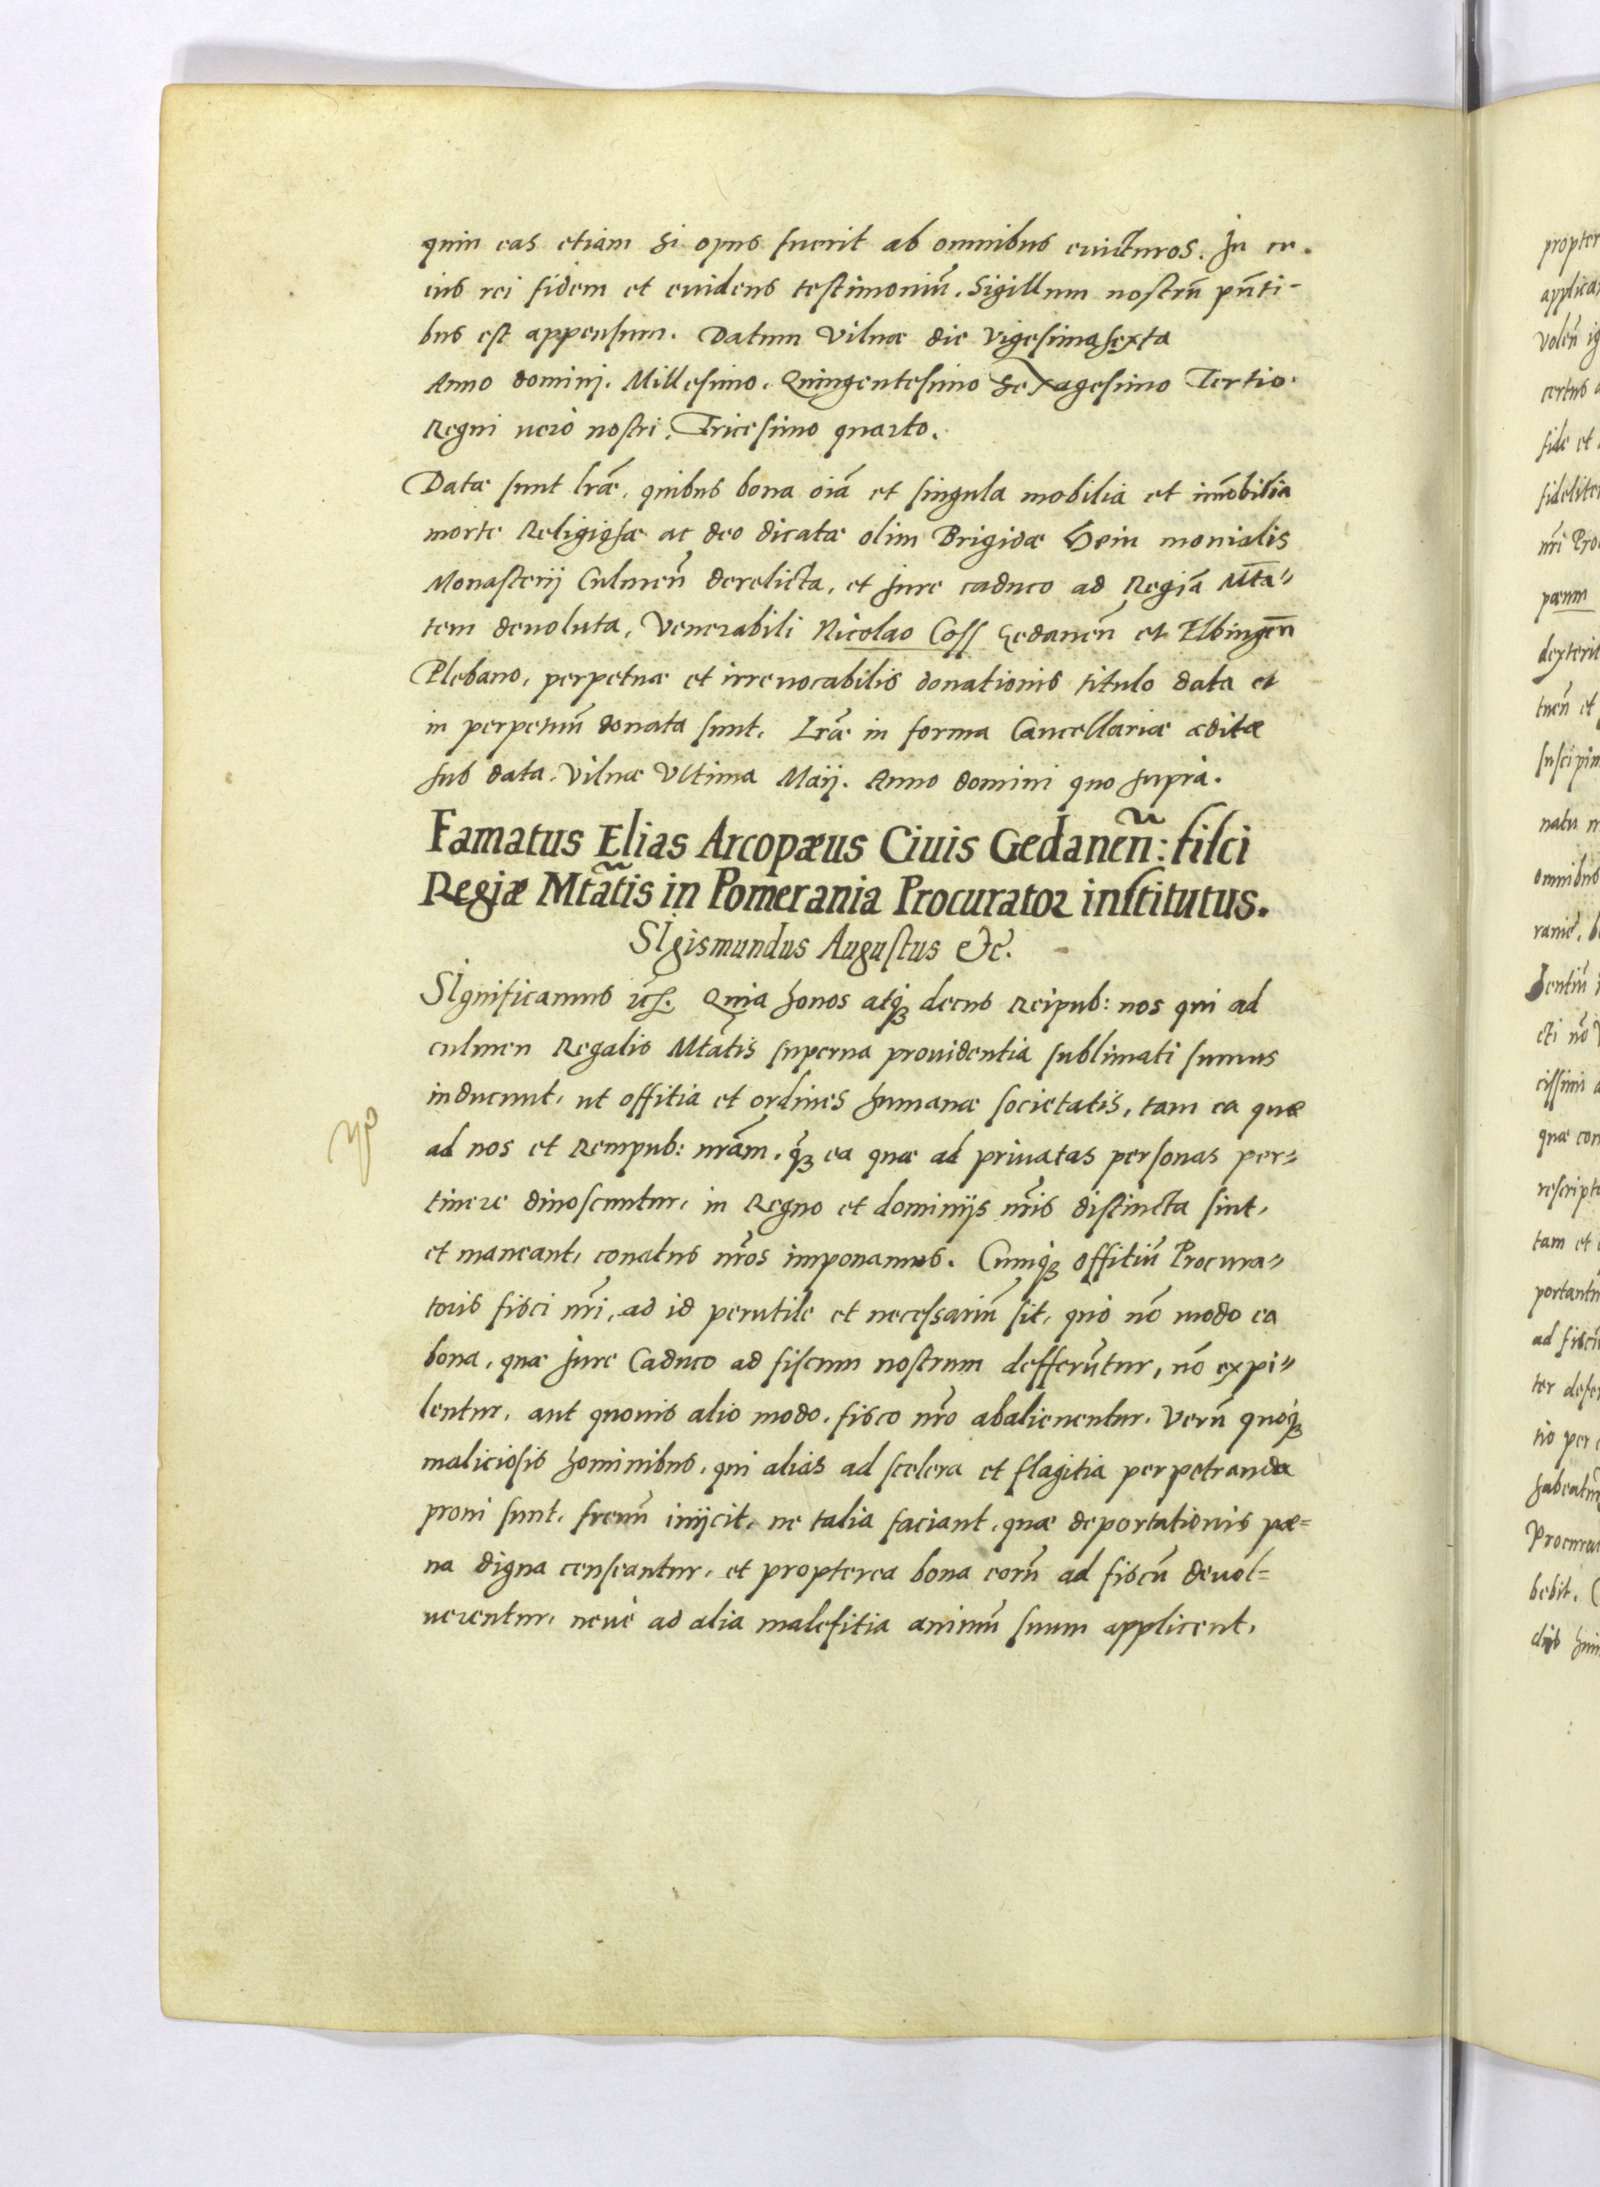 quin eas etiam si opus fuerit ab omnibus euicturos. In cu.
ius rei fidem et euidens testimoniũ. Sigillum nostrũ pñti-
bus est appensum. Datum Vilnæ die Vigesimasexta
Anno dominj. Millesimo. Quingentesimo Sexagesimo Tertio.
Regni verò nostri. Tricesimo quarto.
Datæ sunt lræ̃, quibus bona oiã et singula mobilia et imõbilia
morte Religiosæ ac deo dicatæ olim Brigidæ Hein monialis
Monasterij Culmeñ derelicta, et jure caduco ad Regiã Mta͞"
tem deuoluta, Venerabili Nicolao Coss Gedaneñ et Elbingeñ
Plebano, perpetuæ et irreuocabilis donationis titulo data et
in perpetuũ donata sunt. Lræ̃ in forma Cancellariæ æditæ
sub data. Vilnæ Vltima Maij. Anno domini quo supra.
Famatus Elias Arcopæus Ciuis Gedaneñ: fisci
Regiæ Mtãtis in Pomerania Procurator institutus.
SIgismundus Augustus &c̃.
SIgnificamus &c̃. Quia honos atq3 decus Reipub: nos qui ad
culmen Regalis Mtãtis superna prouidentia sublimati sumus
inducunt, ut offitia et ordines humanæ societatis, tam ea quæ
ad nos et Rempub: nrãm. q̃3 ea quæ ad priuatas personas per"
tinere dinoscuntur, in Regno et dominijs nr̃is distincta sint,
et maneant, conatus nr̃os imponamus. Cumq3 offitiũ Procura"
toris fisci nr̃i, ad id perutile et necessariũ sit, quò nõ modo ea
bona, quæ jure Caduco ad fiscum nostrum defferũtur, nõ expi"
lentur, aut quouis alio modo, fisco nr̃o abalienentur. Verũ quóq3
maliciosis hominibus, qui alias ad scelera et flagitia perpetranda
proni sunt, frenũ inijcit, ne talia faciant, quæ deportationis pæ=
na digna censeantur, et propterea bona eorũ ad fiscũ deuol=
uerentur, neuè ad alia malefitia animũ suum applicent,